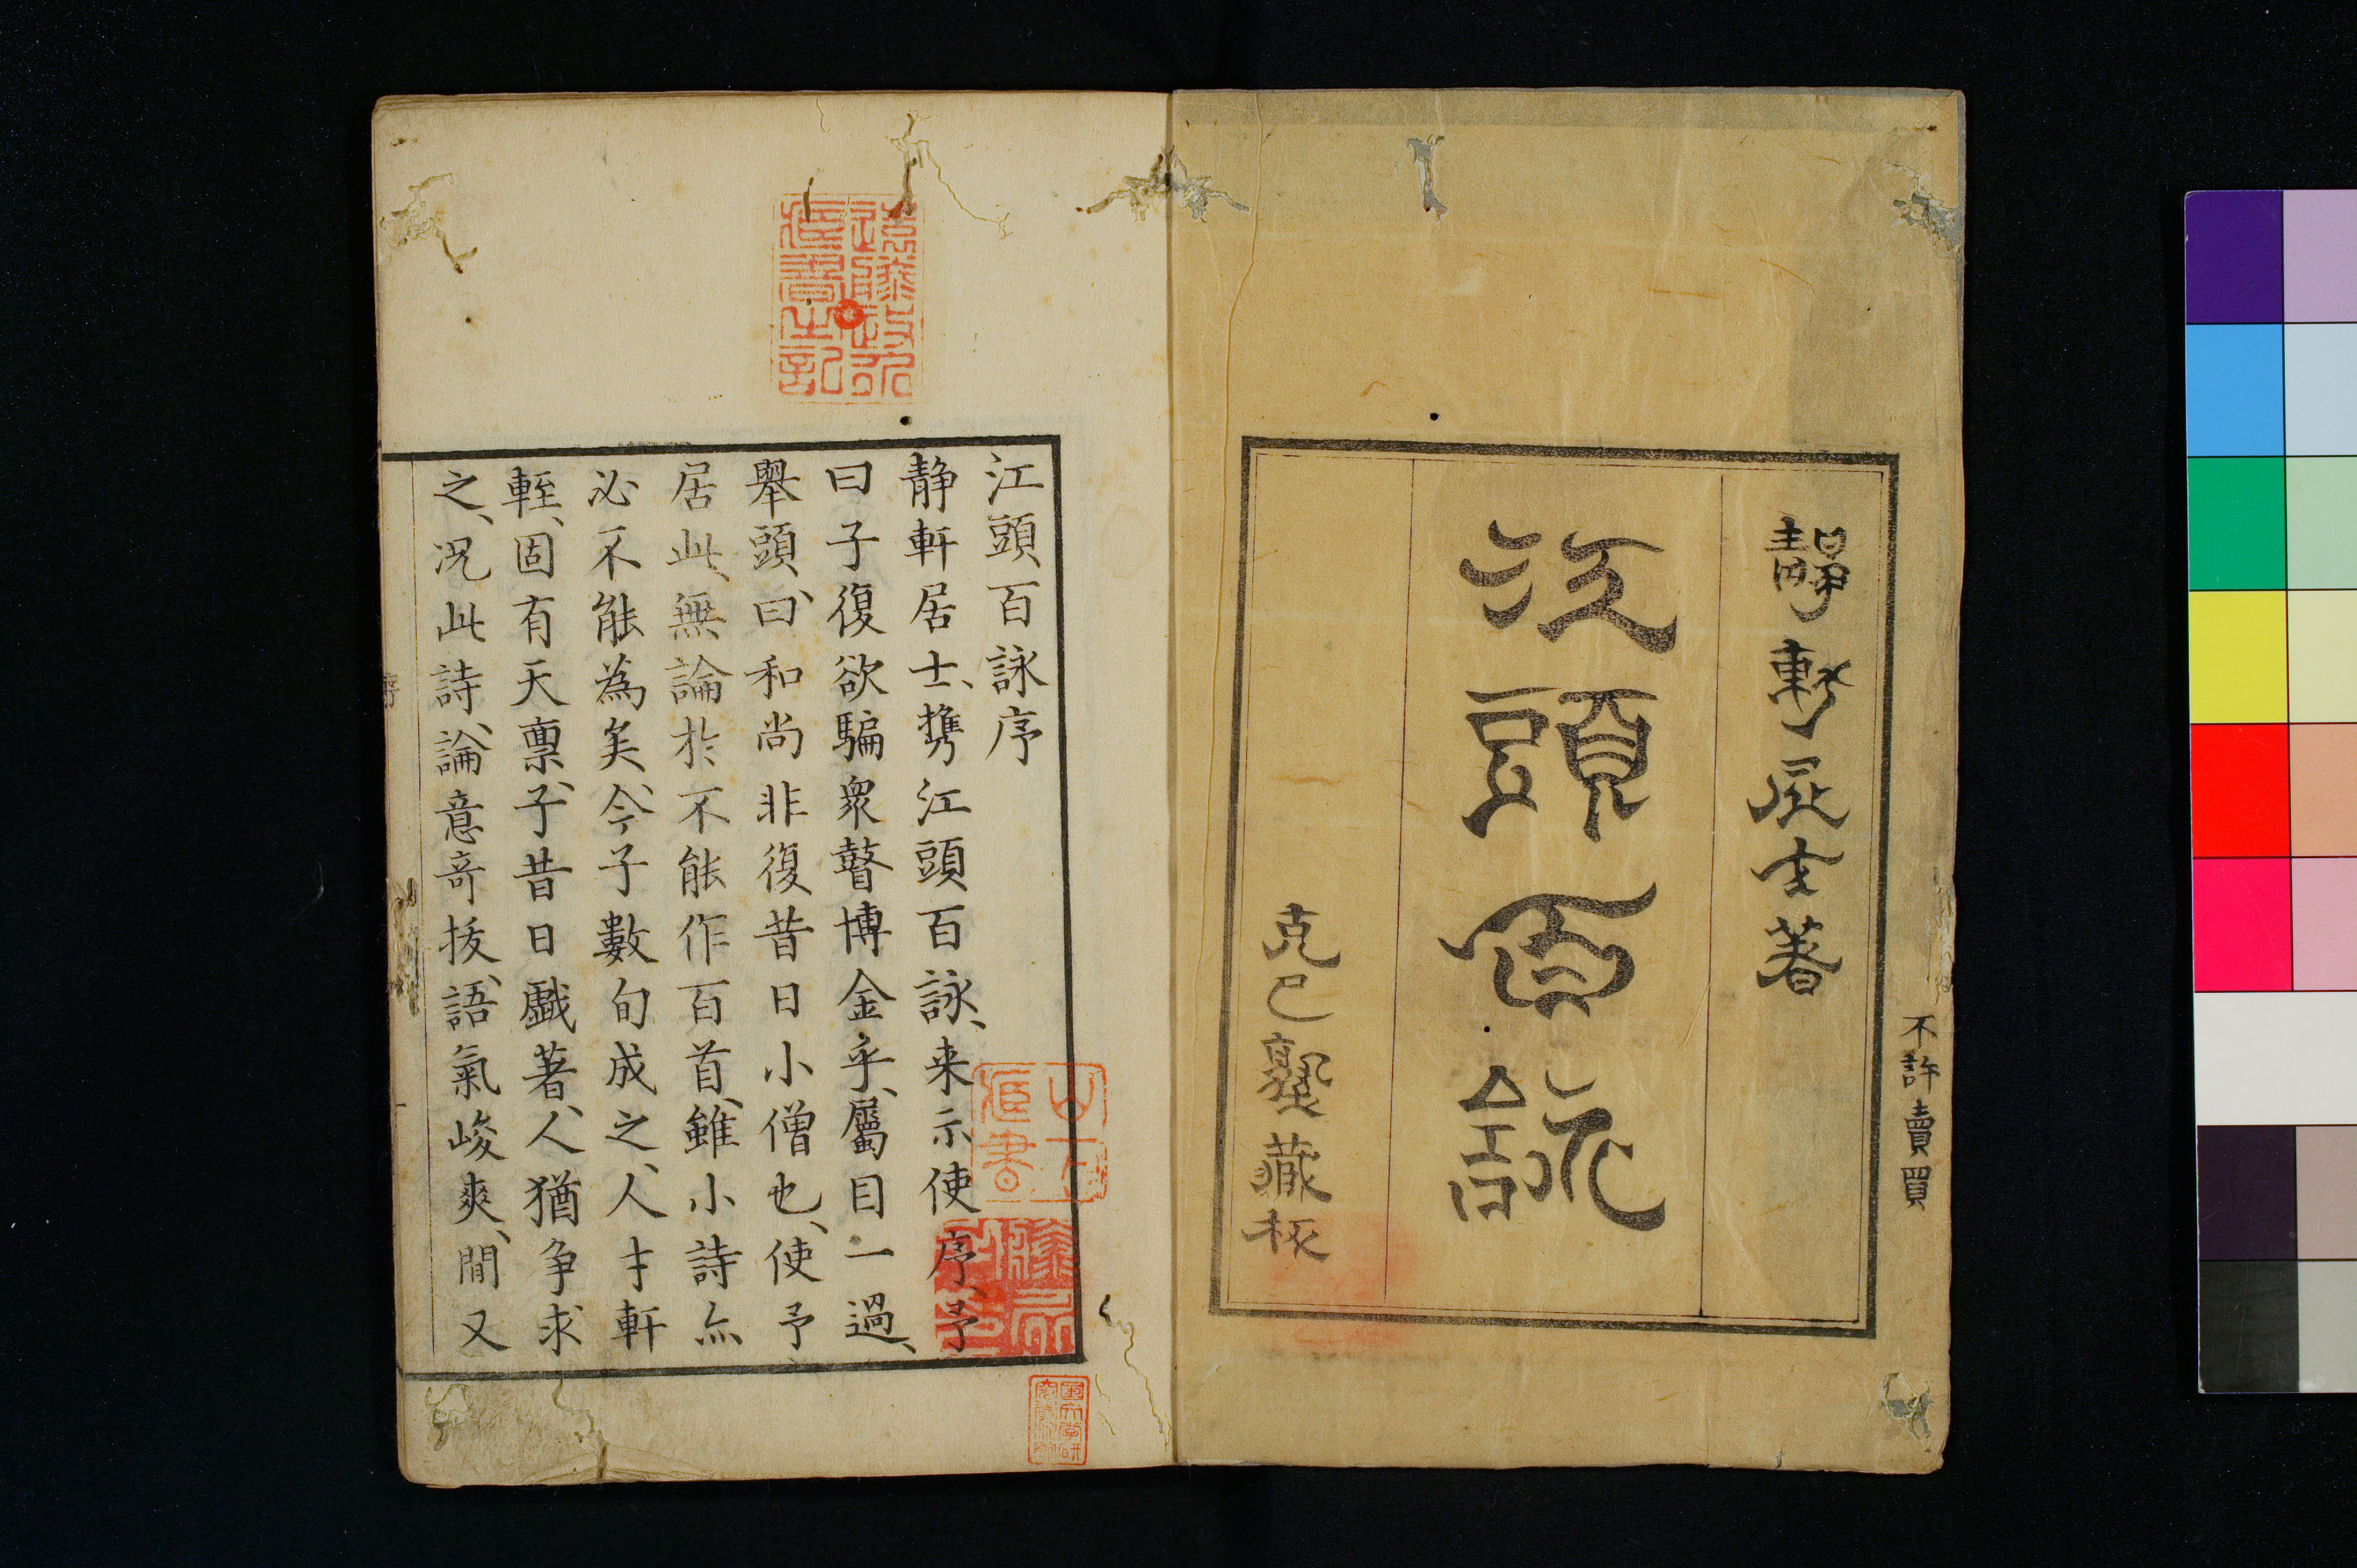 不許賣買
靜軒居士著
江頭百詠
克己塾藏板
江頭百詠序
静軒居士、携江頭百詠、来示使序、予
曰子復欲騙衆瞽博金乎、屬目一過、
舉頭、曰、和尚非復昔日小僧也、使予
居此、無論於不能作百首、雖小詩亦
必不能為矣、今子數旬成之、人才軒
輊、固有天稟、子昔日戲著、人猶爭求
之、况此詩、論意奇拔、語氣峻爽、間又
序